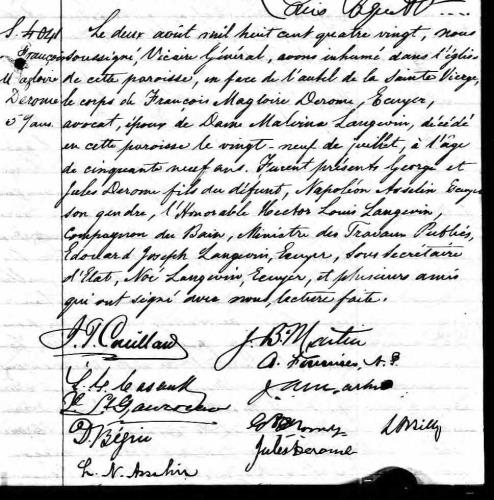 S. 404
François
Magloire
Derome
59 ans.
Le deux août mil huit cent quatre vingt, nous
soussigné, Vicaire Général, avons inhumé dans l'église
de cette paroisse, en face de l'autel de la Sainte Vierge,
le corps de François Magloire Derome, Ecuyer,
avocat, époux de Dame Malvina Langevin, décédé
en cette paroisse le vingt-neuf de juillet, à l'âge
de cinquante neuf ans. Furent présents George et
Jules Derome fils du défunt, Napoléon Asselin Ecuyer
son gendre, l'Honorable Hector Louis Langevin,
Compagnon du Bain, Ministre des Travaux Publics,
Edouard Joseph Langevin, Ecuyer, sous-secrétaire
d'Etat, Noé Langevin, Ecuyer, et plusieurs amis
qui ont signé avec nous, lecture faite.
J. T. Couillard
J. B. Martin
A. N. P.
D. Bégin
Jules Derome
L. N. Asselin